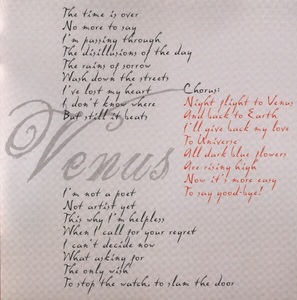 The time is over
No more to say
I'm passing through
The disillusions of the day
The rains of sorrow
Wash down the streets
I've lost my heart
I don't know where
But still it beats
Chorus:
Night flight to Venus
And back to Earth
I'll give back my love
To Universe
All dark blue flowers
Are rising high
Now it's more easy
To say good-bye!
Venus
I'm not a poet
Not artist yet
This why I'm helpless
When I call for your regret
I can't decide now
What asking for
The only wish
To stop the watch, to slam the door